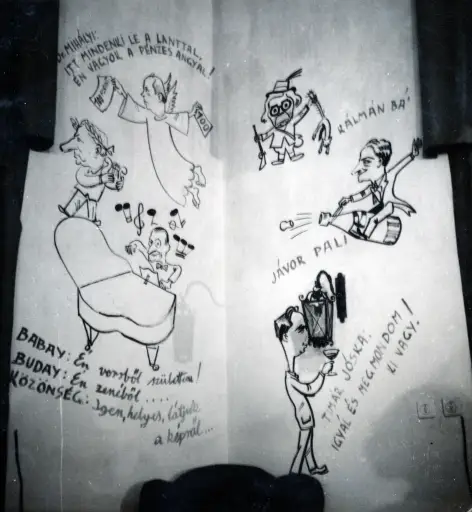 Dr. MIHÁLYI:
ITT MINDENKI LE A LANTTAL,
ÉN VAGYOK A PÉNZES ANGYAL!
100
KÁLMÁN BÁ'
JÁVOR PALI
TIMÁR JÓSKA:
IGYÁL ÉS MEGMONDOM
KI VAGY!
BABAY: Én versből születtem!
BUDAY: Én zenéből .....
KÖZÖNSÉG: Igen, helyes, látjuk
a képről...